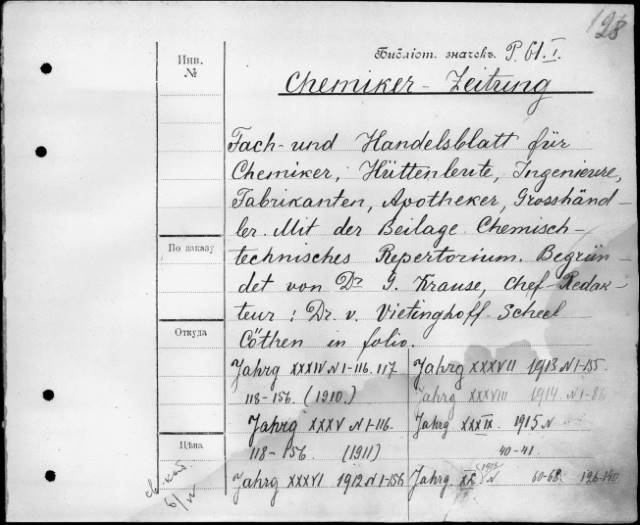 128
Библіот. значекъ P. 61. I.
Инв.
№
Chemiker-Zeitung
Fach- und Handelsblatt für
Chemiker, Hüttenleute, Ingenieure,
Fabrikanten, Apotheker, Grosshänd-
ler. Mit der Beilage Chemisch-
technisches Repertorium. Begrün-
По заказу
det von Dr. G. Krause, Chef-Redak-
teur: Dr. v. Vietinghoff Scheel
Откуда
Cöthen in folio.
Jahrg XXXIV N 1-116. 117
118-156. (1910.)
Jahrg XXXV N 1-116.
118-156 (1911)
Jahrg XXXVI 1912 N 1-156
Jahrg XXXVII 1913 N 1-155.
Jahrg XXXVIII 1914 N 1-86
Jahrg XXXIX 1915 N
40-41.
Jahrg XL 1916 N 60-68.
Цѣна